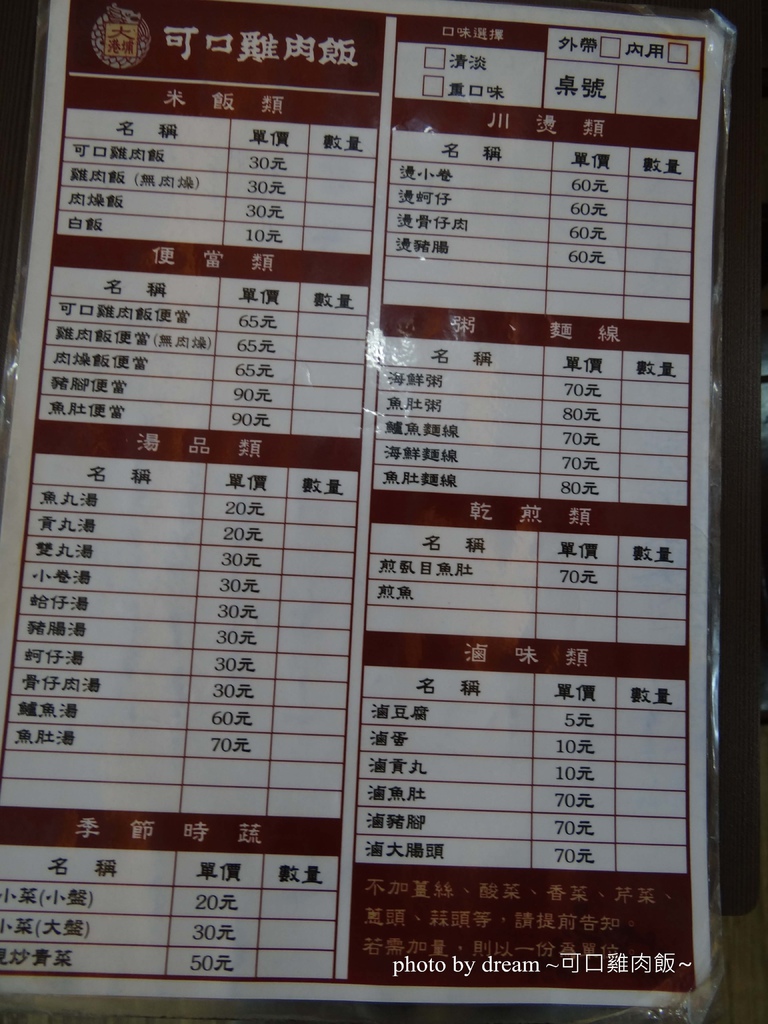 大港埔
可口雞肉飯
米飯類
名稱 單價 數量
可口雞肉飯 30元
雞肉飯(無肉燥) 30元
肉燥飯 30元
白飯 10元
便當類
名稱 單價 數量
可口雞肉飯便當 65元
雞肉飯便當(無肉燥) 65元
肉燥飯便當 65元
豬腳便當 90元
魚肚便當 90元
湯品類
名稱 單價 數量
魚丸湯 20元
貢丸湯 20元
雙丸湯 30元
小卷湯 30元
蛤仔湯 30元
豬腸湯 30元
蚵仔湯 30元
骨仔肉湯 30元
鱸魚湯 60元
魚肚湯 70元
季節時蔬
名稱 單價 數量
小菜(小盤) 20元
小菜(大盤) 30元
現炒青菜 50元
口味選擇
清淡
重口味
外帶 內用
桌號
川燙類
名稱 單價 數量
燙小卷 60元
燙蚵仔 60元
燙骨仔肉 60元
燙豬腸 60元
粥、麵線
名稱 單價 數量
海鮮粥 70元
魚肚粥 80元
鱸魚麵線 70元
海鮮麵線 70元
魚肚麵線 80元
乾煎類
名稱 單價 數量
煎虱目魚肚 70元
煎魚
滷味類
名稱 單價 數量
滷豆腐 5元
滷蛋 10元
滷貢丸 10元
滷魚肚 70元
滷豬腳 70元
滷大腸頭 70元
不加薑絲、酸菜、香菜、芹菜、
蔥頭、蒜頭等,請提前告知。
若需加量,則以一份為單位。
photo by dream ~可口雞肉飯~